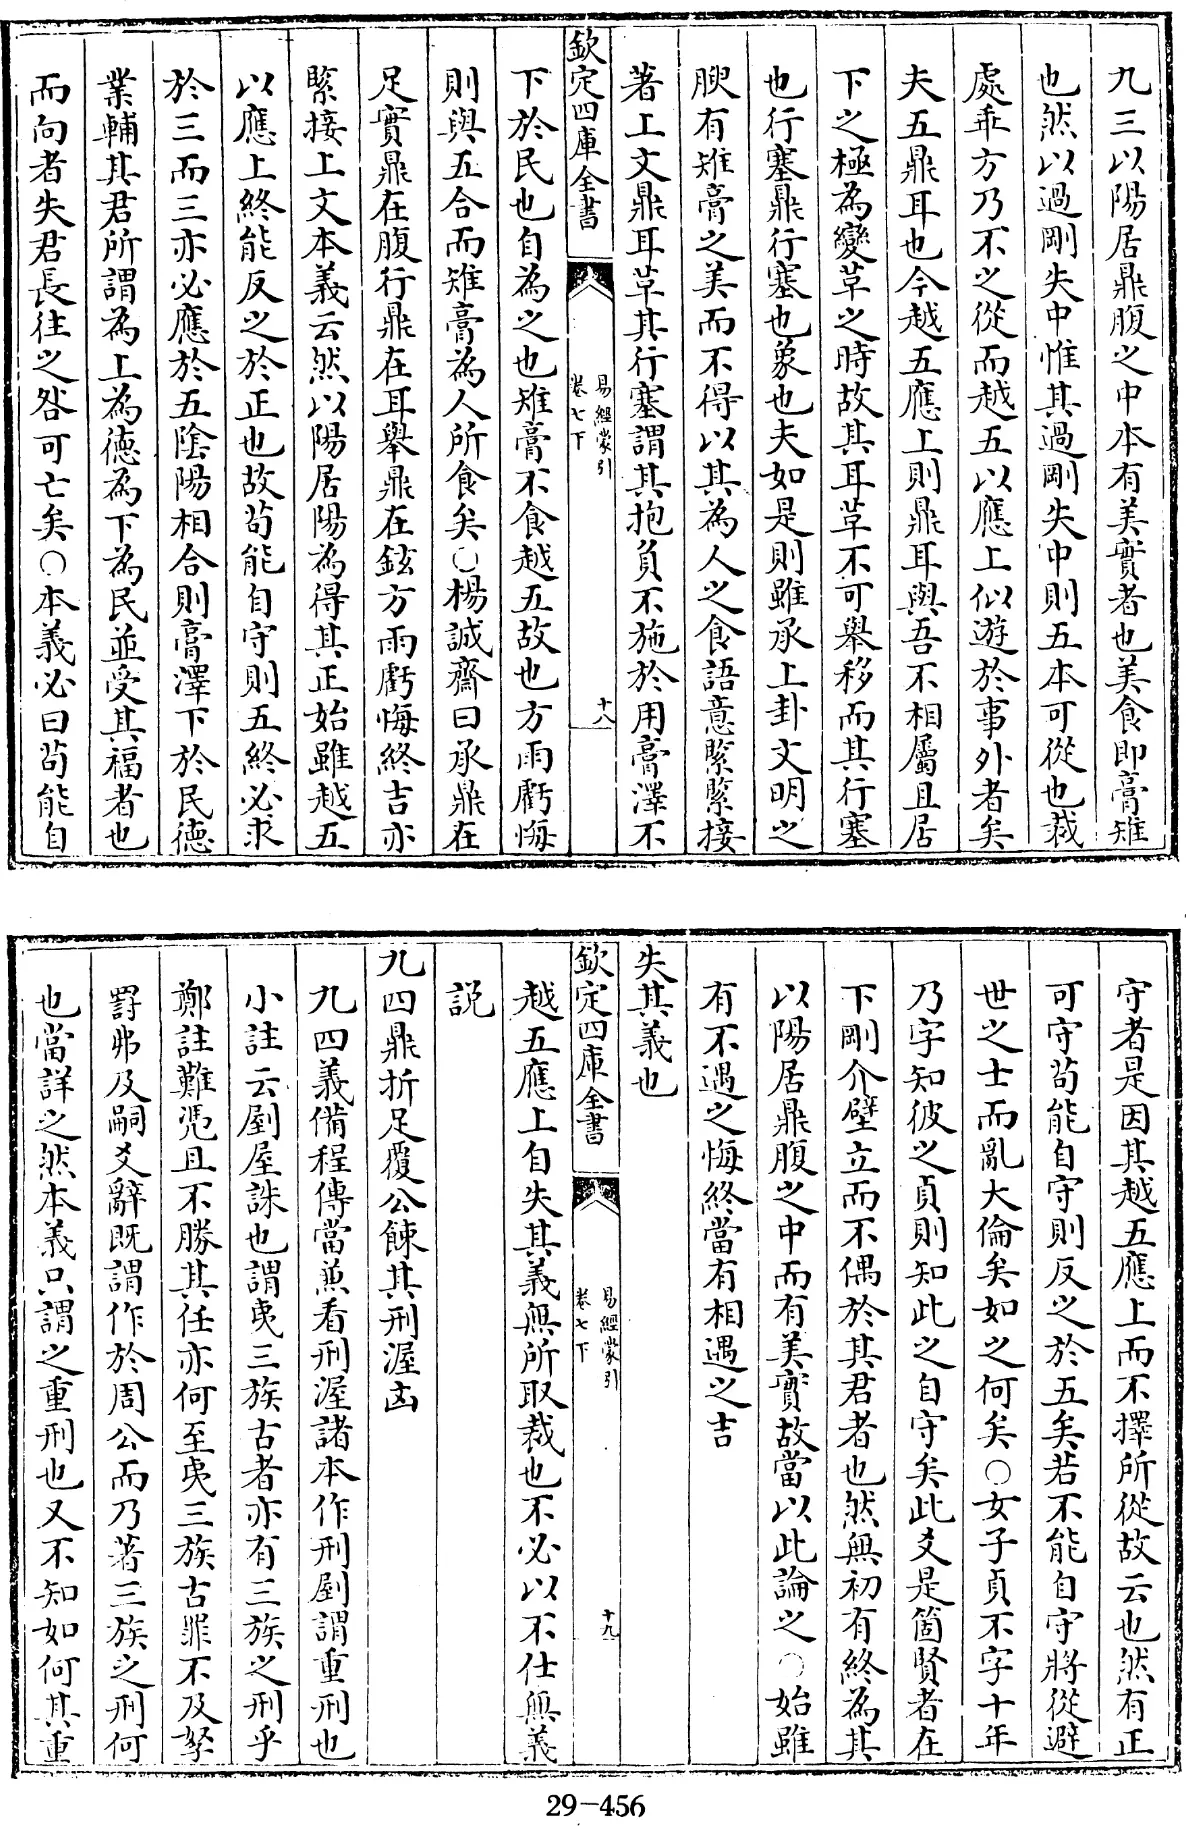 九三以陽居鼎腹之中本有美實者也美食即膏雉
也然以過剛失中惟其過剛失中則五本可從也我
處乖方乃不之從而越五以應上似遊於事外者矣
夫五鼎耳也今越五應上則鼎耳與吾不相屬且居
下之極為變革之時故其耳革不可舉移而其行塞
也行塞鼎行塞也象也夫如是則雖承上卦文明之
腴有雉膏之美而不得以其為人之食語意緊緊接
著上文鼎耳革其行塞謂其抱負不施於用膏澤不
欽定四庫全書
易經蒙引
卷七下
十八
下於民也自為之也雉膏不食越五故也方雨虧悔
則與五合而雉膏為人所食矣○楊誠齋曰承鼎在
足實鼎在腹行鼎在耳舉鼎在鉉方雨虧悔終吉亦
緊接上文本義云然以陽居陽為得其正始雖越五
以應上終能反之於正也故茍能自守則五終必求
於三而三亦必應於五陰陽相合則膏澤下於民德
業輔其君所謂為上為德為下為民並受其福者也
而向者失君長往之咎可亡矣○本義必曰茍能自
守者是因其越五應上而不擇所從故云也然有正
可守茍能自守則反之於五矣若不能自守將從避
世之士而亂大倫矣如之何矣○女子貞不字十年
乃字知彼之貞則知此之自守矣此爻是箇賢者在
下剛介壁立而不偶於其君者也然無初有終為其
以陽居鼎腹之中而有美實故當以此論之○始雖
有不遇之悔終當有相遇之吉
失其義也
欽定四庫全書
易經蒙引
卷七下
十九
越五應上自失其義無所取裁也不必以不仕無義
説
九四鼎折足覆公餗其刑渥凶
九四義備程傳當兼看刑渥諸本作刑剭謂重刑也
小註云剭屋誅也謂夷三族古者亦有三族之刑乎
鄭註難凴且不勝其任亦何至夷三族古罪不及孥
罸弗及嗣爻辭既謂作於周公而乃著三族之刑何
也當詳之然本義只謂之重刑也又不知如何其重
29-456